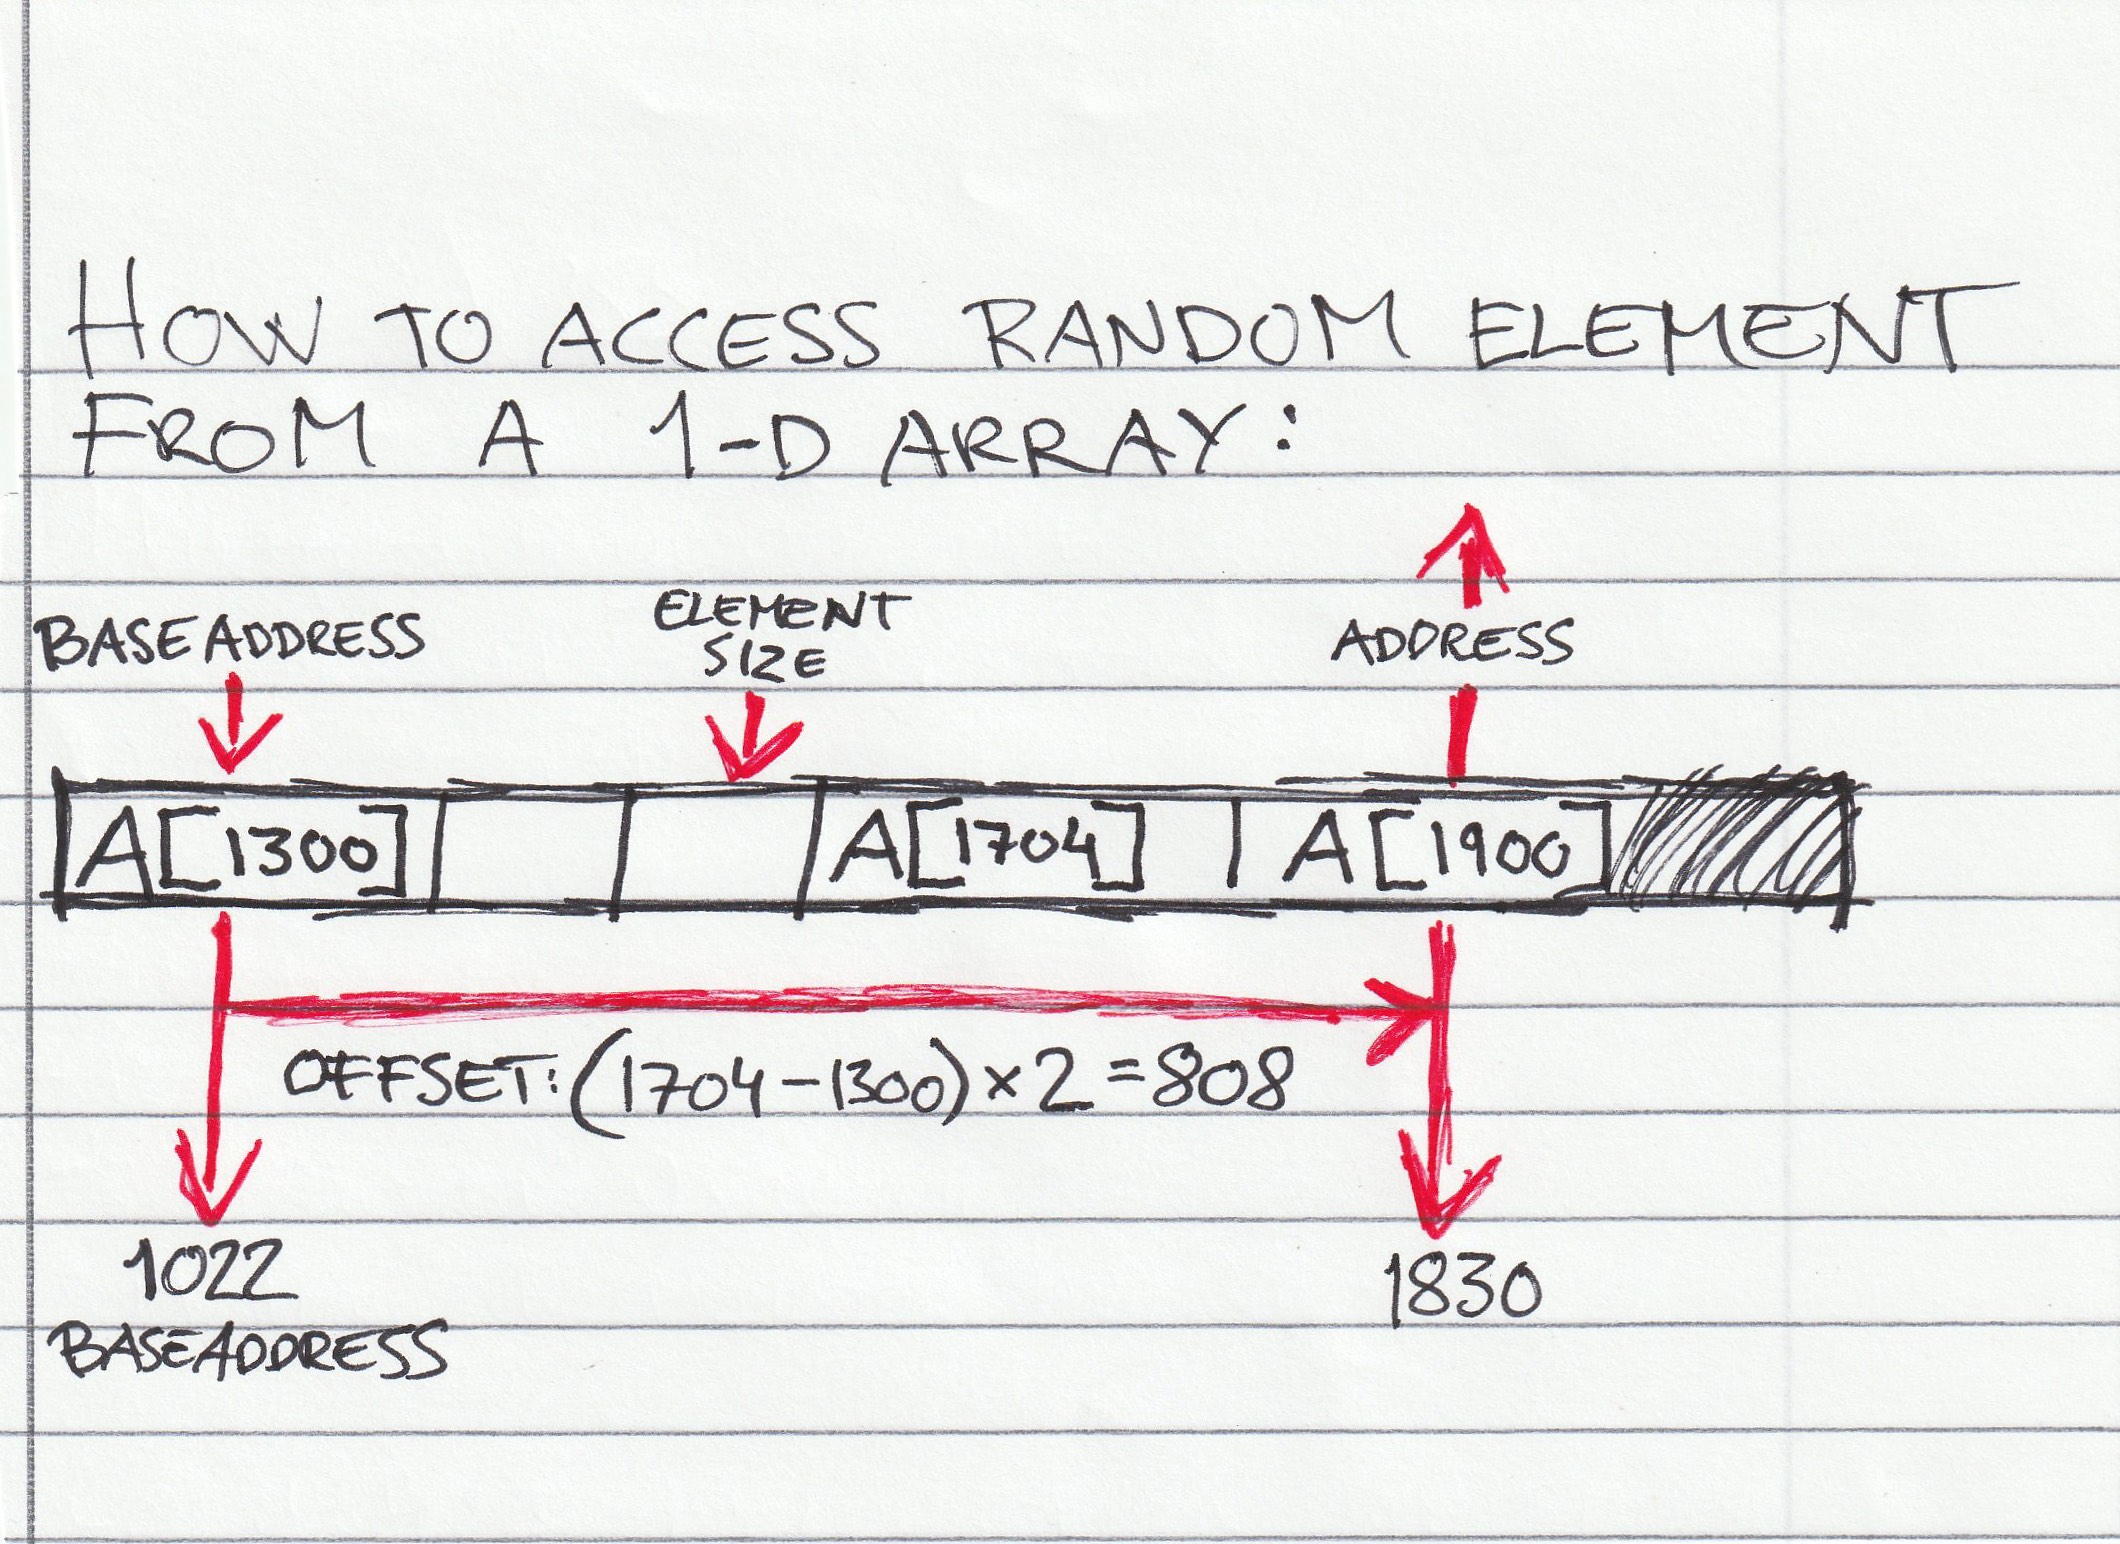 HOW TO ACCESS RANDOM ELEMENT
FROM A 1-D ARRAY:
BASEADDRESS
ELEMENT
SIZE
ADDRESS
A[1300] A[1704] A[1900]
OFFSET: (1704-1300)×2=808
1022
BASEADDRESS
1830